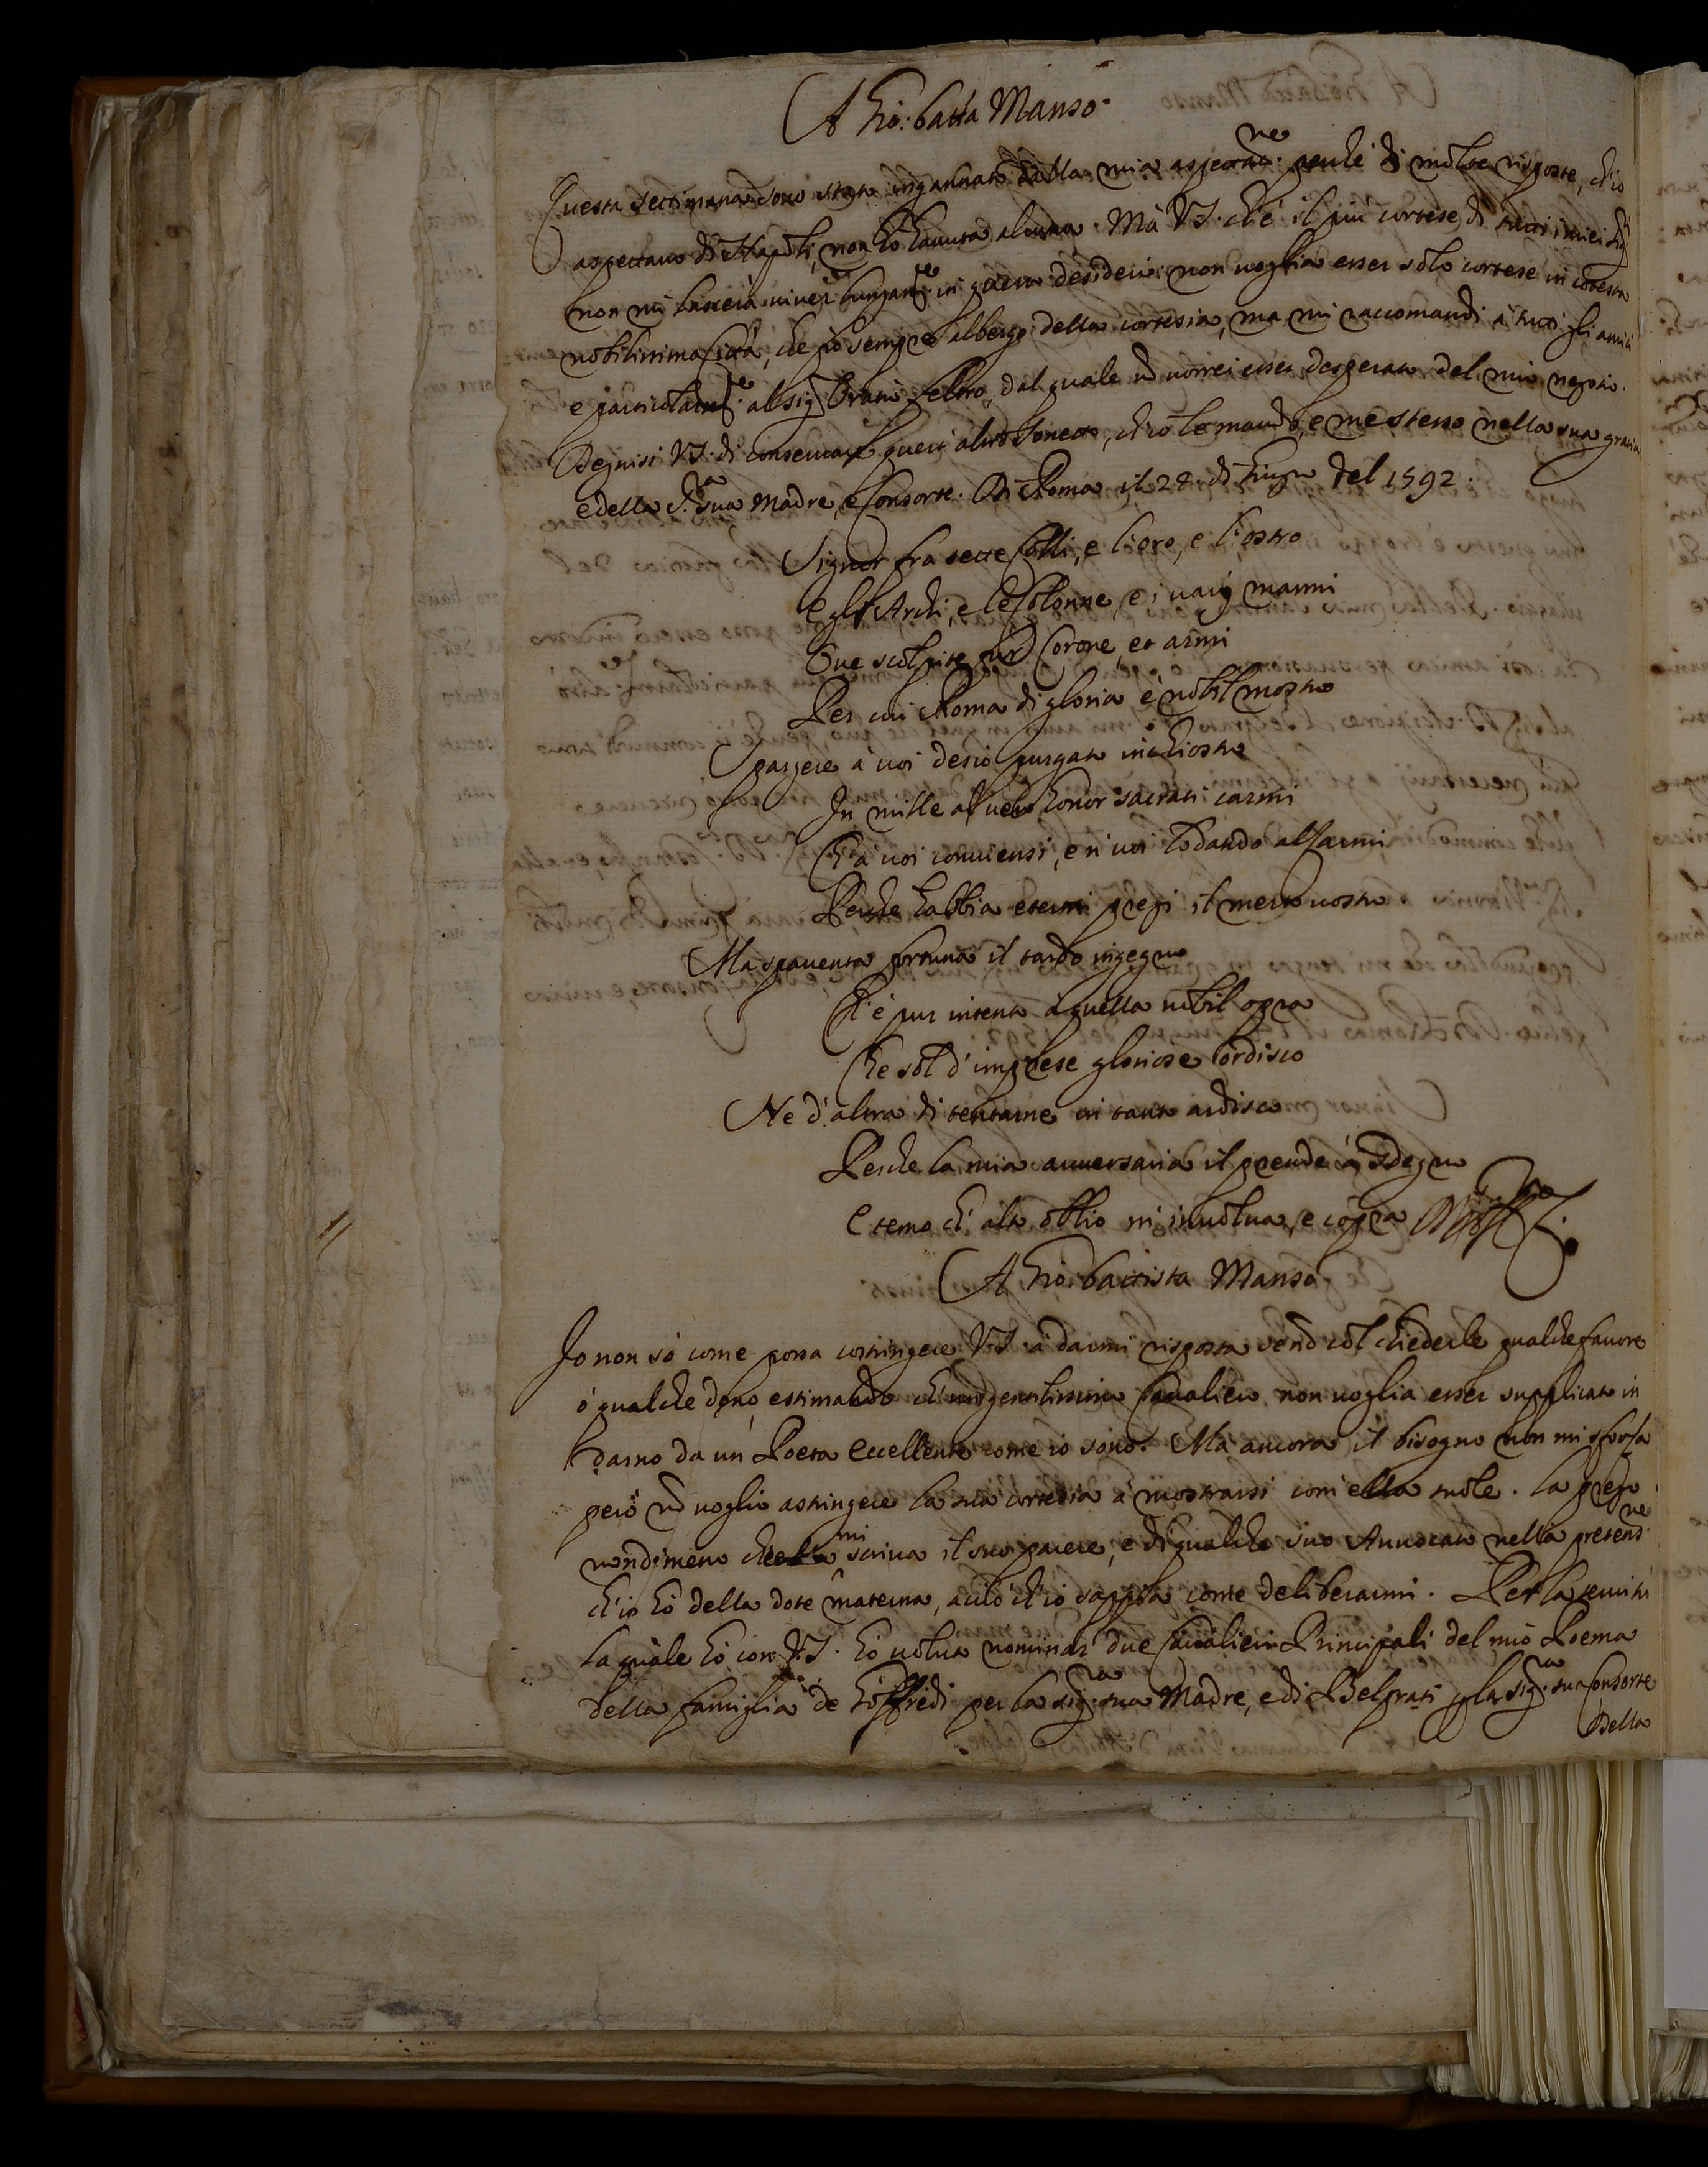 A Gio: batta Manso.
Questa settimana sono stato ingannato dalla mia aspettat.ne perche di molte risposte, ch'io
aspettaua di Napoli, non hò hauuta alcuna. Mà V.S. ch'è il più cortese di tutti i miei Sig.ri
non mi lascerà viuer lungam.te in questo desiderio: non uoglia esser solo cortese in cotesta
nobilissima Città, che fù sempre albergo della cortesia, ma mi raccomandi à tutti gli amici
e particolarm.te al sig.r Oratio Feltro, dal quale nõ uorrei esser desperato del mio negotio.
Degnisi V.S. di conseruare questi altro Sonetto, ch'io le mando, e me stesso nella sua gratia
e della S.ra sua Madre, e Consorte. Di Roma il 28. di Giugno del 1592.
Signor fra sette Colli, e l'oro, e l'ostro
E gli Archi, e le Colonne, e i varij marmi
Oue scolpite pur Corone, et armi
Per cui Roma di gloria è nobil mostro
Spargere à uoi desio purgato inchiostro
In mille al uero honor sacrati carmi
Ch'à uoi conuiensi, e 'n uoi lodando alzarmi
Perche habbia eterni pregi il merto uostro
Ma spauenta fortuna il tardo ingegno
Ch'è pur intento à quella nobil opra
Che sol d'imprese gloriose hordisco
Ne d'altra di tentarne in tanto ardisco
Perche la mia auuersaria il prende à sdegno
E temo ch'alto oblio m'inuolua, e copra
A Gio: battista Manso
Io non sò come possa costringere V.S. à darmi risposta senõ col chiederle qualche fauore
ò qualche dono, estimando ch'un gentilissimo Caualiero non uoglia esser supplicato in
darno da un Poeta eccellente come io sono. Ma ancora il bisogno non mi sforza
però nõ uoglio astringere la sua cortesia à mostrarsi com'ella suole. La prego
nondimeno che mi scriua il suo parere, e di qualche suo Auuocato nella pretens.ne
ch'io hò della dote materna, acciò ch'io sappia come deliberarmi. Per la seruitù
la quale hò con V.S. hò uoluto nominar due Caualieri Principali del mio Poema
della famiglia de Gioffredi per la sig.ra sua Madre, e di Belprati p la sig.ra sua Consorte
Della